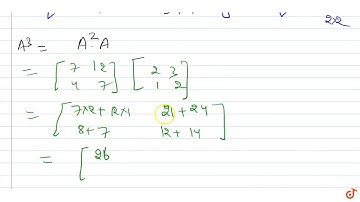 2x2
A³ = A².A
= [7 12 4 7] [2 3 1 2]
= [7x2 + 12x1 21 + 24
8+7 12 + 14]
= [26